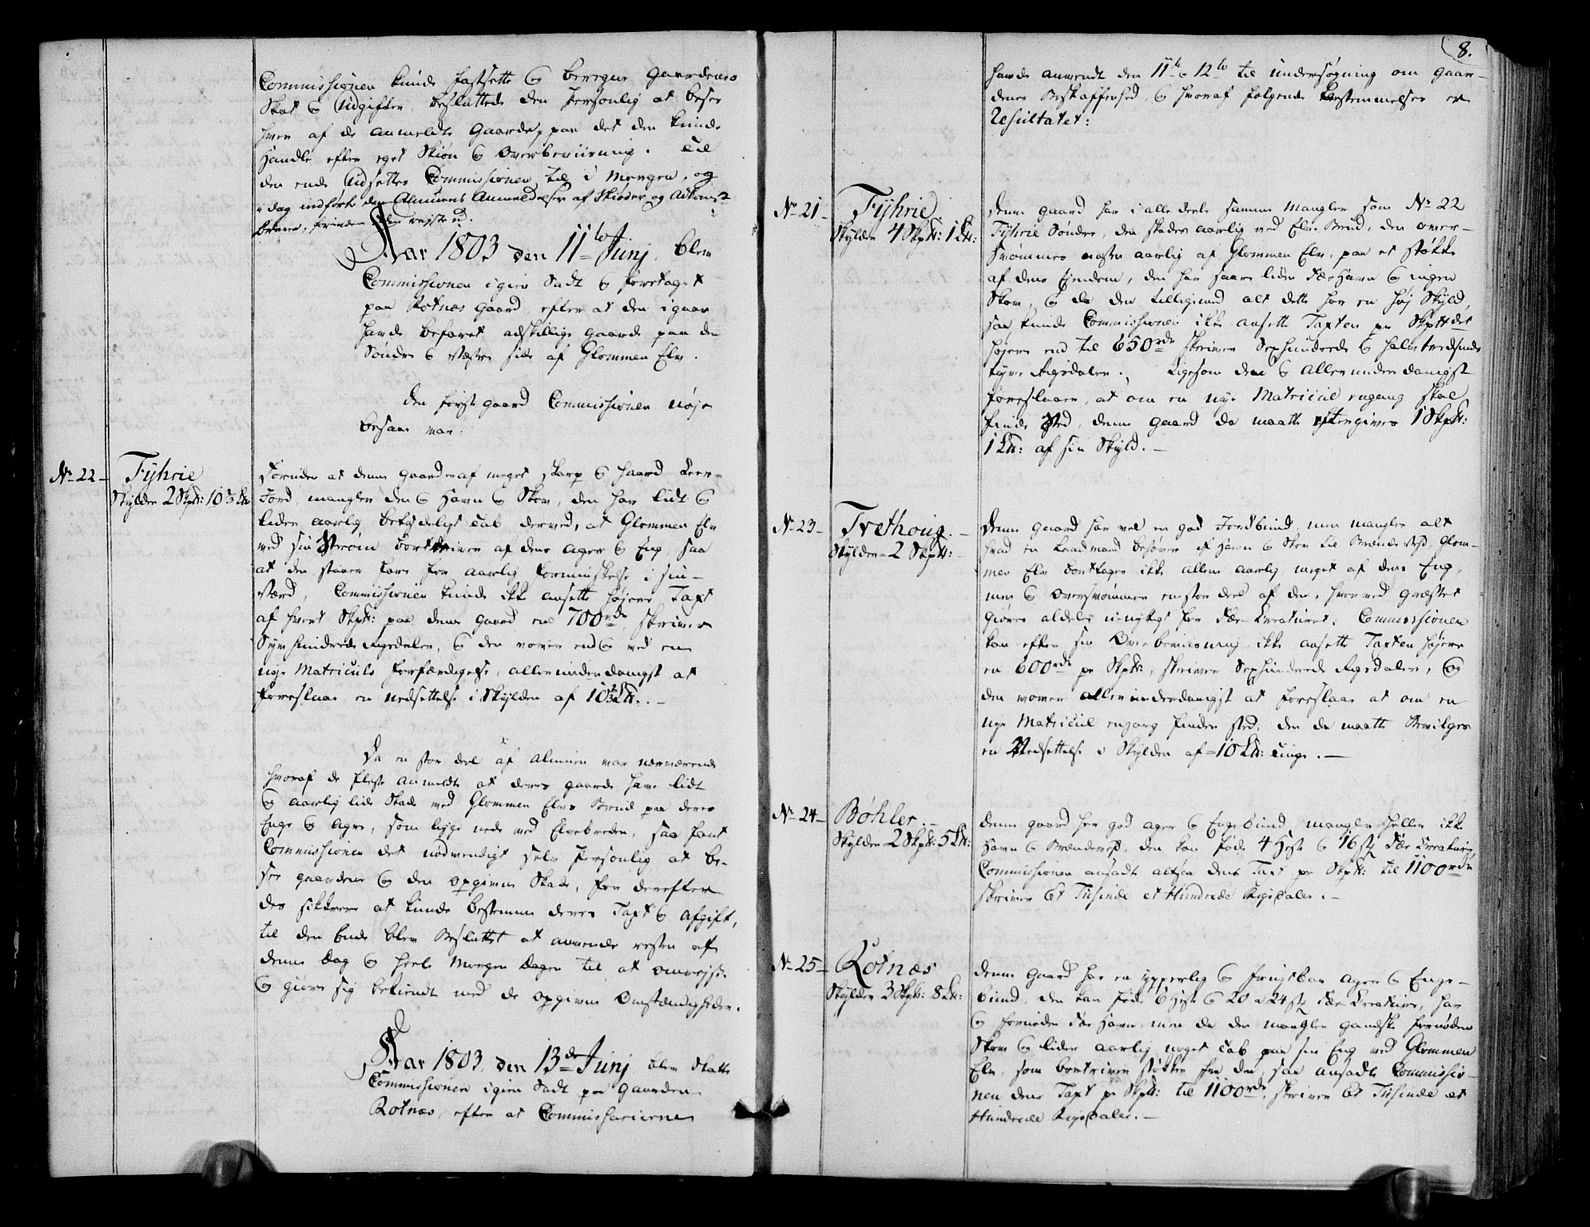 Commissionen kunde fastsette og beregne Gaardenes
Skat og Udgifter, besluttede den Personlig at besee
hver af de anmeldte Gaarde, paa det den kunde
handle efter eget Skiøn og Overbeviisning. Til
den ende Udsettes Commissionen til i Morgen, og
i dag indførte den Almuens Anmeldelser af Skiøder og
Aar 1803 den 11te Junj, blev
Commissionen igien Sadt og foretaget
paa Rotnæs Gaard, efter at den igaar
havde befaret adskillige Gaarde paa den
Søndre og Vestre side af Glommen Elv.
Den første gaard Commissionen nøje
besaae var:
No 22 Fyhrie
Skylder 2 Skpd: 10½ Ld
Foruden at denne gaard er af meget skarp og haard Leer-
Jord, mangler den og Havn og Skov, den har lidt og
lider aarlig betydeligt Tab derved, at Glommen Elv
ved sin Strøm bortskierer af dens Ager og Eng, saa
at den staaer fare for aarlig Forminskelse i sin
værd, Commissionen kunde ikke ansette højere Taxt
af hvert Skpd: paa denne gaard end 700rdr, skriver
Syv hundrede Rigsdaler, og den vover endog ved en
nye Matriculs Forfærdigelse, allerunderdanigst at
foreslaae en nedsettelse i Skylden af 10½ Ld:.—
Da en stor deel af Almuen var nærværende
hvoraf de fleste anmeldte at deres gaarde have lidt
og aarlig lide Skade ved Glommen Elvs Brud paa deres
Enge og Agre, som ligge nede ved Elvebredden, saa fant
Commissionen det nødvendigt selv Personlig at be-
see gaardene og den opgivne Skade, for derefter
des sikkrere at kunde bestemme deres Taxt og Afgift,
til den Ende blev Besluttet at anvende resten af
denne Dag og heele Morgen Dagen til at omrejse
og giøre sig bekiendt med de opgivne Omstændigheder.
Aar 1803 den 13de Junj blev Skatte
Commissionen igien Sadt paa Gaarden
Rotnæs, efter at Commissarierne
8.
havde anvendt den 11te og 12te til undersøgning om gaar-
denes Beskaffenhed, og hvoraf følgende bestemmelser er
Resultatet:
No 21 Fyhrie
Skylder 4 Skpd: 1 Ld:
Denne gaard har i alle deele samme Mangler som No 22
Fyhrie Søndre, den skades aarlig ved Elve Brud, den over-
svømmes næsten aarlig af Glommen Elv, paa et støkke
af dens Ejendom, den har saare liden Fæe Havn og ingen
Skov, og da den tilligemed alt dette har en høj Skyld,
saa kunde Commissionen ikke ansette Taxten pr Skpd det
højere end til 650rdr skriver Sexhundrede og halvtredsinds
tyve Rigsdaler. Ligesom den og Allerunderdanigst
foreslaaer, at om en nye Matricul engang skal
finde Sted, denne gaard da maatte eftergives 1 Skpd:
1 Ld: af sin Skyld.—
No 23 Trethoug
Skylder 2 Skpd:
Denne gaard har vel en god Jordbund, men mangler alt
hvad en Landmand behøver af Havn og Skov til Brændeved, Glom-
men Elv borttager ikke allene aarlig meget af dens Eng,
men og oversvømmer en stor deel af den, hvorved Græsset
giøres aldeles unyttigt for Fæe Kreaturer. Commissionen
kan efter sin Overbeviisning ikke ansette Taxten højere
en 600rdr pr Skpd:, skriver Sexhundrede Rigsdaler, og
den vover allerunderdanigst at foreslaae at om en
nye Matricul engang finder sted, den da maatte Bevilges
en Nedsettelse i Skylden af 10 Ld: Tunge.—
No 24 Bøhler
Skylder 2 Skpd: 5 Ld:
Denne gaard har god Ager og Enge bund, mangler heller ikke
Havn og Brændeved, den kan føde 4 Hest og 16 st Fæe Kreaturer
Commissionen ansadt altsaa dens Taxt pr Skpd: til 1100rdr
skriver Et Tusinde et Hundrede Rigsdaler.—
No 25 Rotnæs
Skylder 3 Skpd: 8 Ld:
Denne gaard har en ypperlig og frugtbar Ager og Enge-
bund, den kan føde 6 Hest og 20 a 24 st Fæe Kreaturer, har
og fornøden Fæe Havn, men da den mangler gandske fornøden
Skov og lider aarlig noget Tab paa sin Eng ved Glommen
Elv, som bortriver støkker fra den, saa ansadt Commissio-
nen dens Taxt pr Skpd: til 1100rdr, skriver Et Tusinde et
Hundrede Rigsdaler.—